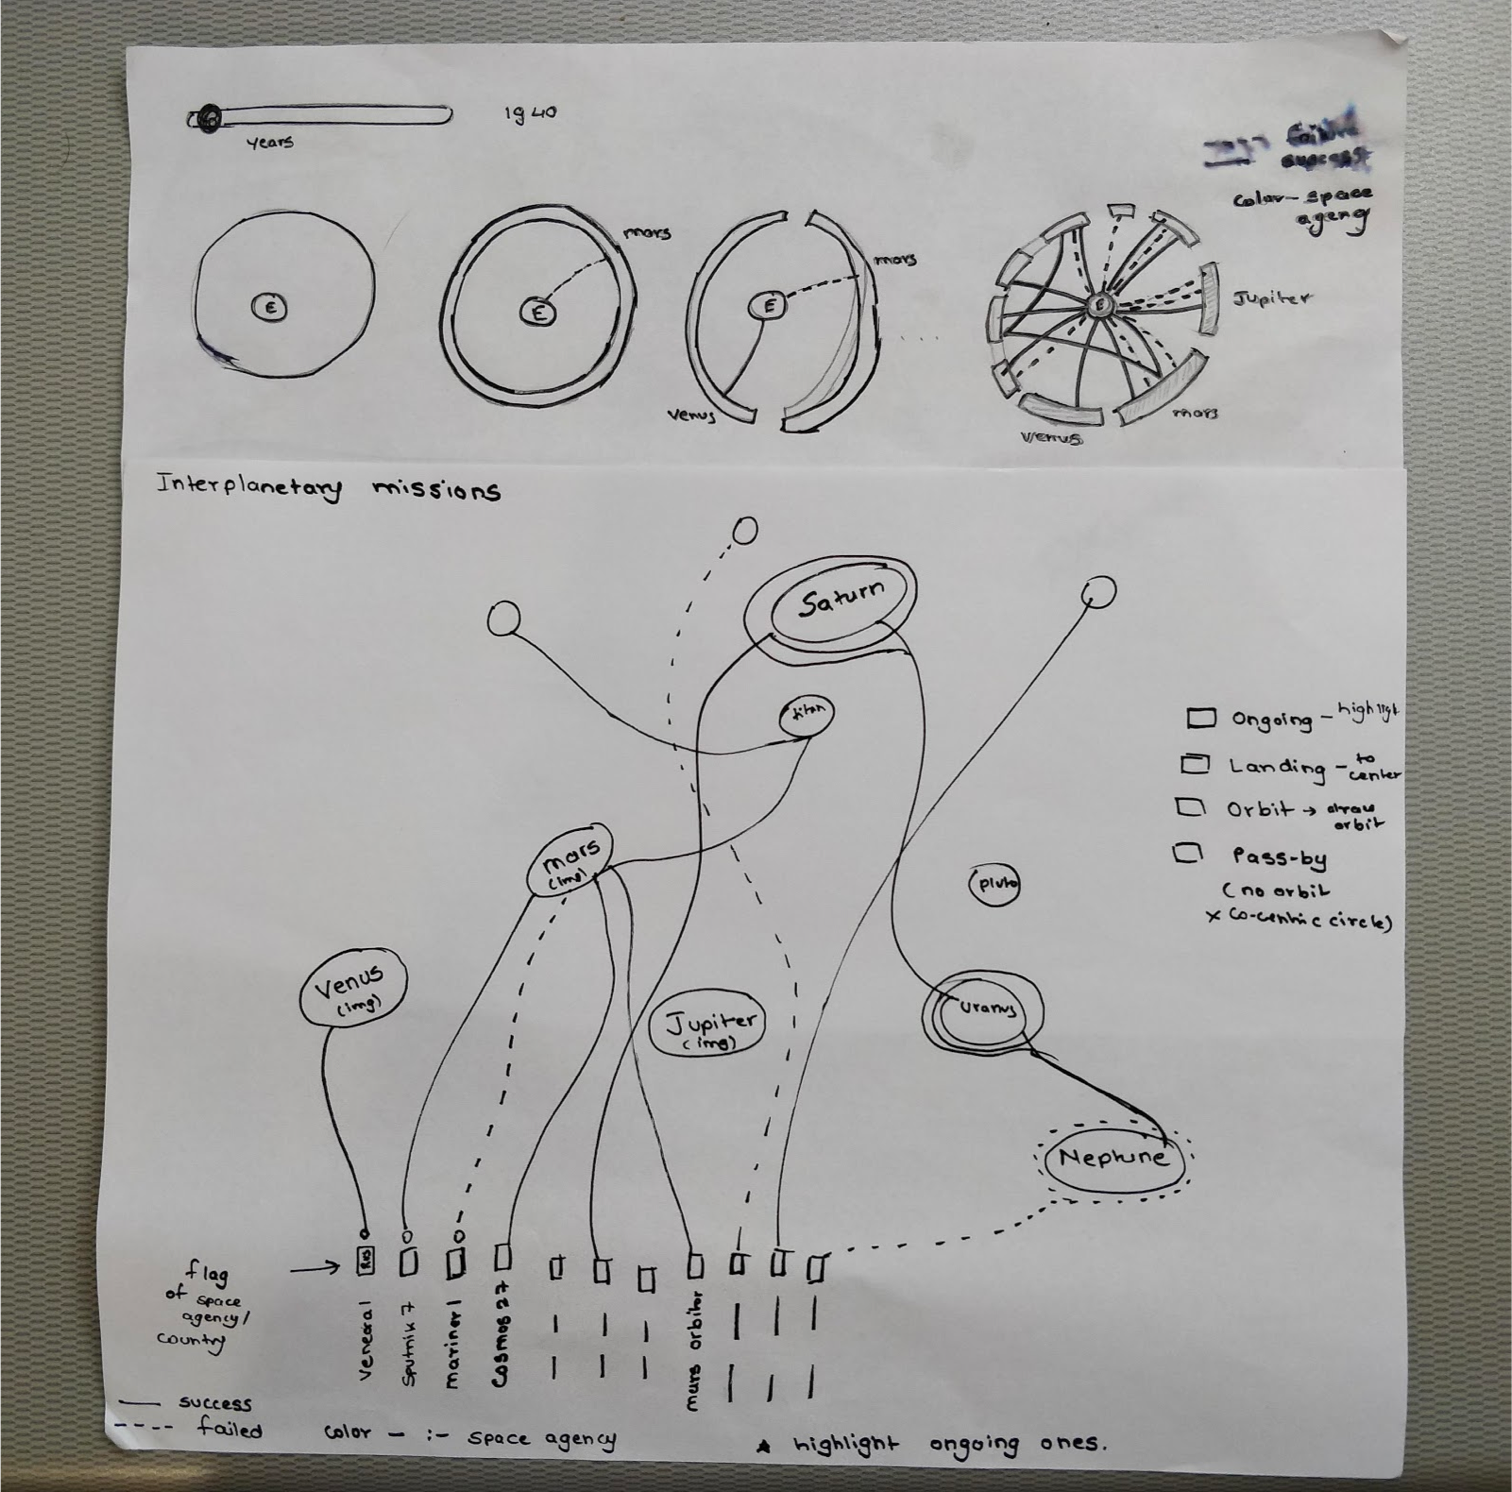 1940
years
failure
success
color - space
agency
E
E
mars
E
mars
venus
E
Jupiter
mars
venus
Interplanetary missions
Saturn
titan
mars
(img)
pluto
Venus
(img)
Jupiter
(img)
uranus
Neptune
Ongoing - highligt
Landing - to
center
Orbit → draw
orbit
Pass-by
(no orbit
x co-centric circle)
flag
of space
agency/
country
RUS
Veneral
Sputnik 7
mariner 1
Cosmos 27
mars orbitor
success
failed
color - :- space agency
★ highlight ongoing ones.